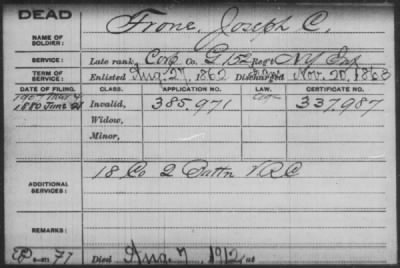 DEAD
NAME OF SOLDIER: Frone, Joseph C.
SERVICE: Late rank, Corp Co. G 152 Reg't NY Inf
TERM OF SERVICE: Enlisted Aug. 27, 1862 Discharged Nov. 20, 1863
DATE OF FILING. CLASS. APPLICATION NO. LAW. CERTIFICATE NO.
1880 June 28 Invalid, 385.971 337.987
Widow,
Minor,
ADDITIONAL SERVICES: 18 Co 2 Battn VRC
REMARKS:
Died Aug. 7, 1912, at